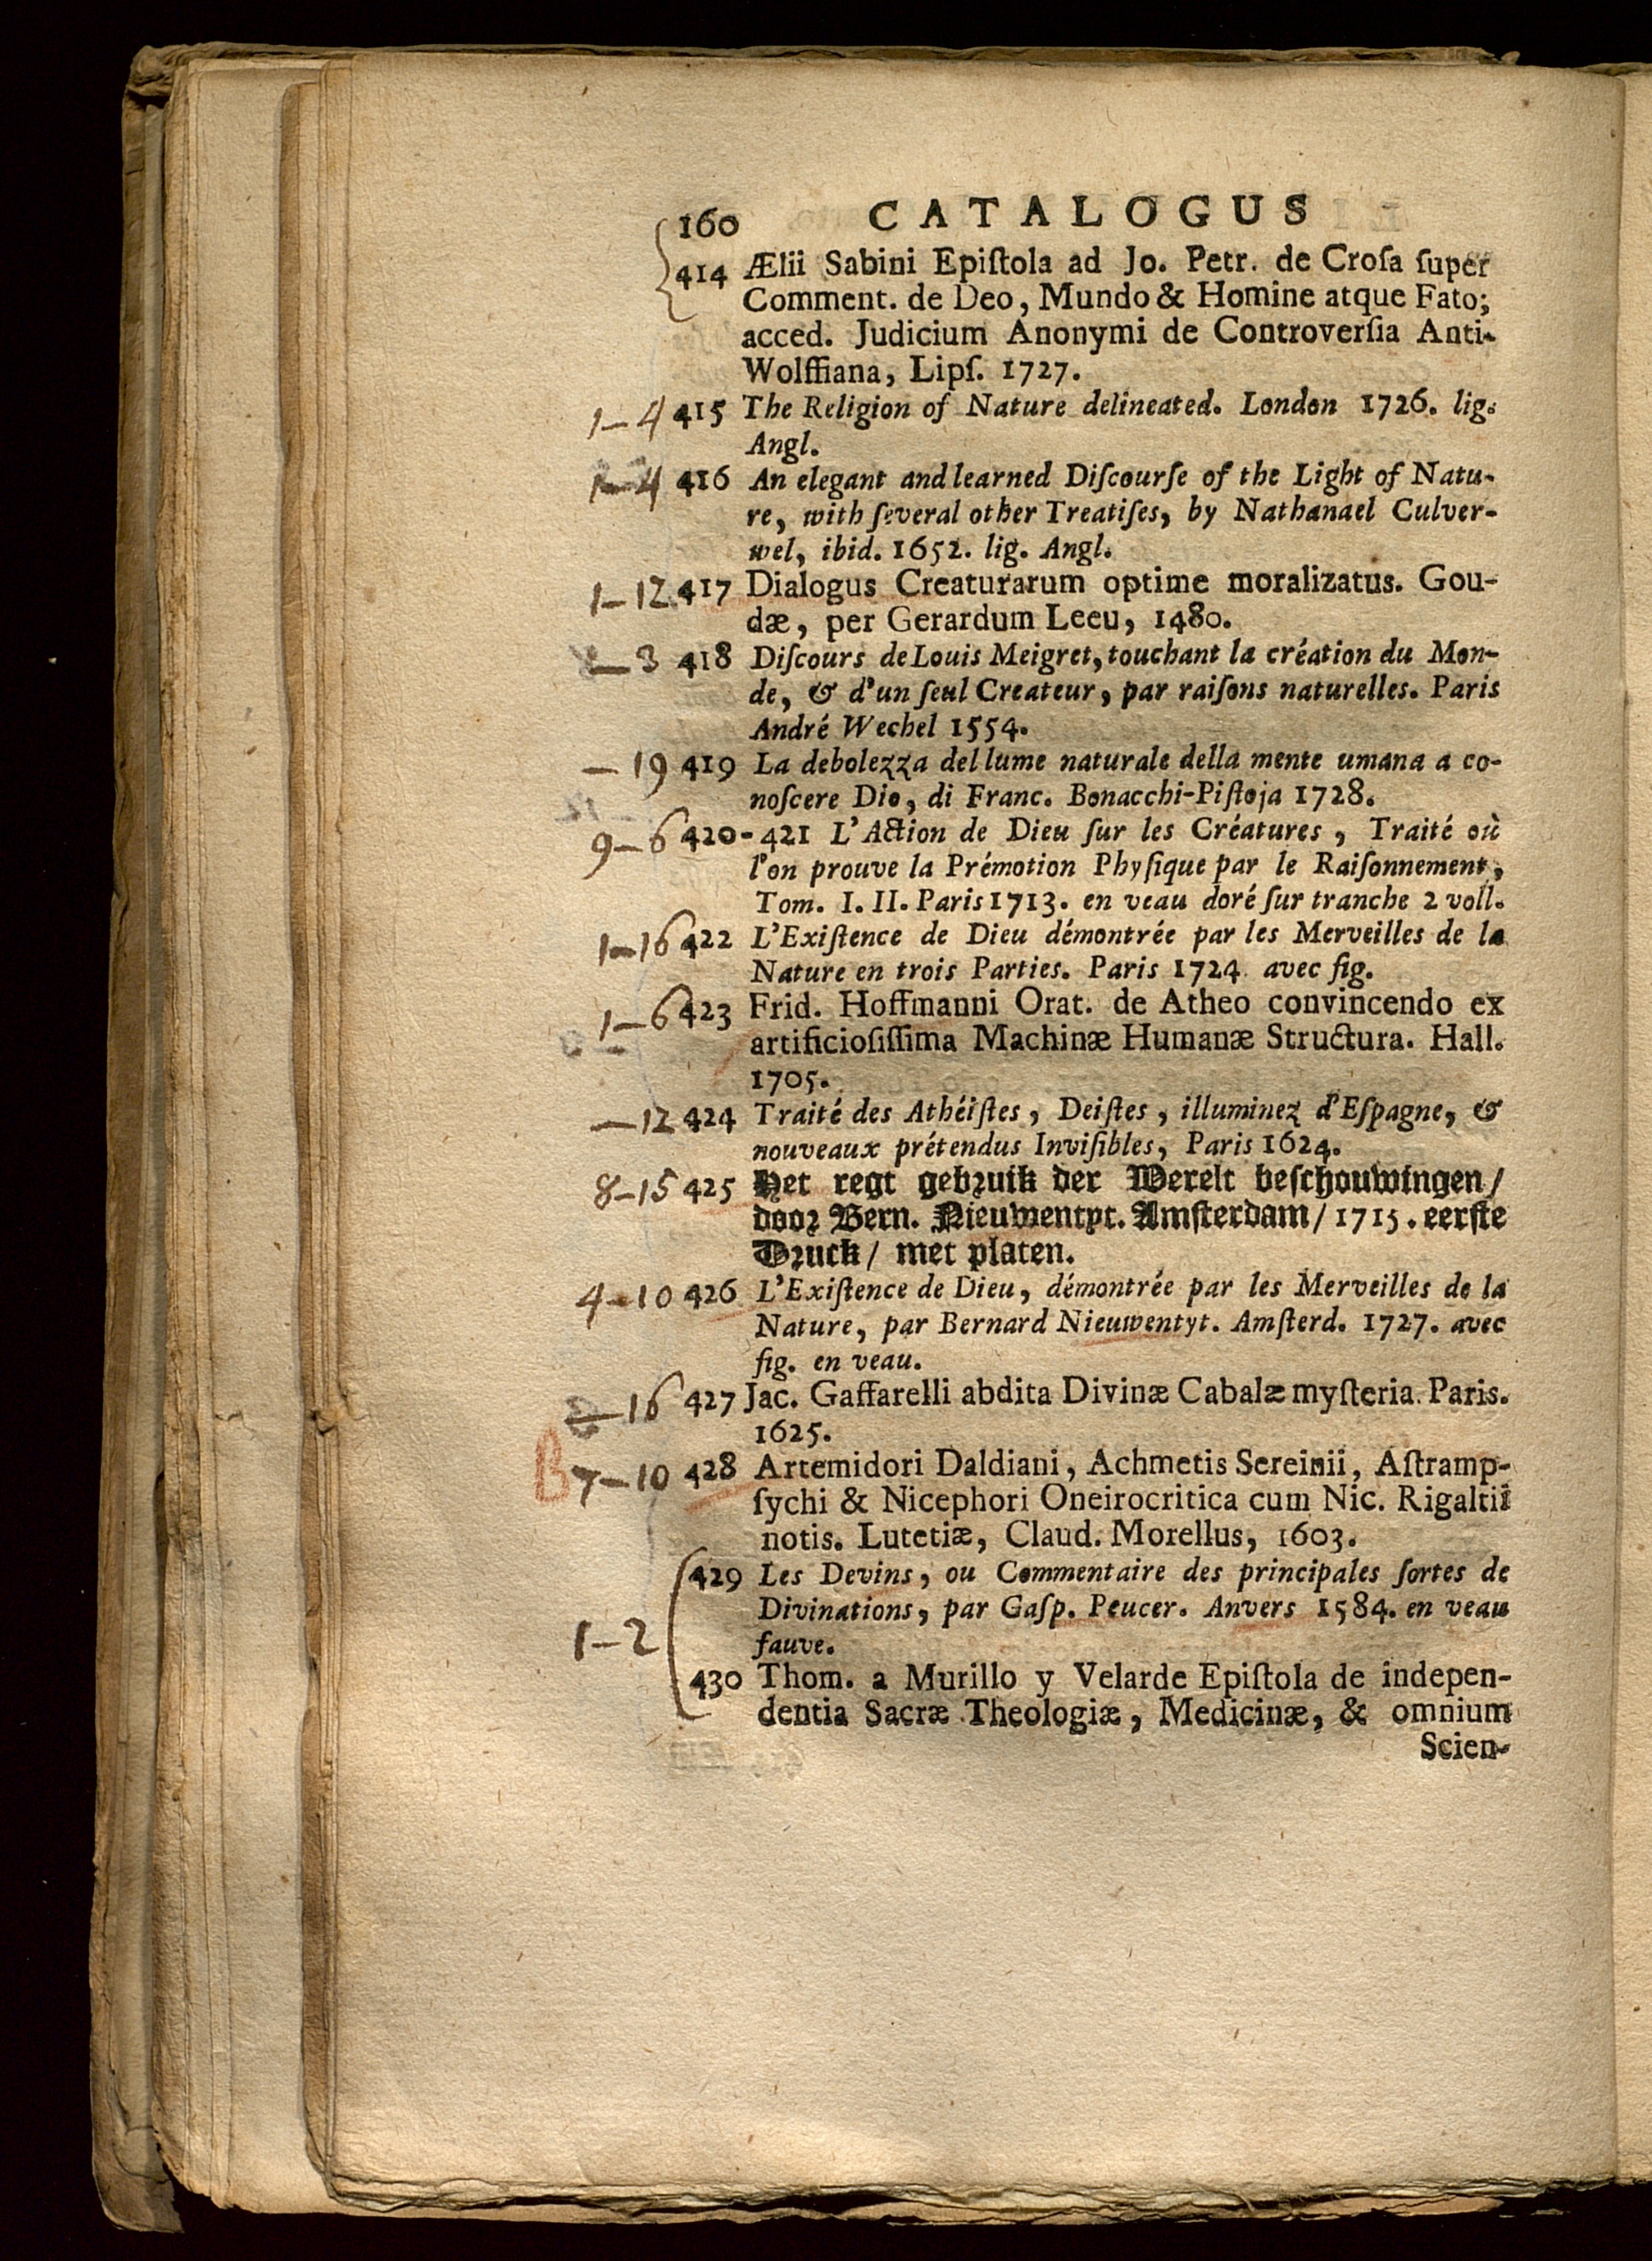 160 CATALOGUS
414 Ælii Sabini Epiſtola ad Jo. Petr. de Croſa ſuper
Comment. de Deo, Mundo & Homine atque Fato;
acced. Judicium Anonymi de Controverſia Anti-
Wolffiana, Lipſ. 1727.
1–4 415 The Religion of Nature delineated. London 1726. lig.
Angl.
4 416 An elegant and learned Diſcourſe of the Light of Natu-
re, with ſeveral other Treatiſes, by Nathanael Culver-
wel, ibid. 1652. lig. Angl.
1–12 417 Dialogus Creaturarum optime moralizatus. Gou-
dæ, per Gerardum Leeu, 1480.
–3 418 Diſcours de Louis Meigret, touchant la création du Mon-
de, & d'un ſeul Createur, par raiſons naturelles. Paris
André Wechel 1554.
–19 419 La debolezza del lume naturale della mente umana a co-
noſcere Dio, di Franc. Bonacchi-Piſtoja 1728.
9–6 420-421 L'Action de Dieu ſur les Créatures, Traité où
l'on prouve la Prémotion Phyſique par le Raiſonnement,
Tom. I. II. Paris 1713. en veau doré ſur tranche 2 voll.
1–16 422 L'Exiſtence de Dieu démontrée par les Merveilles de la
Nature en trois Parties. Paris 1724 avec fig.
1–6 423 Frid. Hoffmanni Orat. de Atheo convincendo ex
artificioſiſſima Machinæ Humanæ Structura. Hall.
1705.
–12 424 Traité des Athéiſtes, Deiſtes, illuminez d'Eſpagne, &
nouveaux prétendus Inviſibles, Paris 1624.
8–15 425 Het regt gebruik der Werelt beſchouwingen/
door Bern. Nieuwentyt. Amſterdam/ 1715. eerſte
Druck/ met platen.
4–10 426 L'Exiſtence de Dieu, démontrée par les Merveilles de la
Nature, par Bernard Nieuwentyt. Amſterd. 1727. avec
fig. en veau.
–16 427 Jac. Gaffarelli abdita Divinæ Cabalæ myſteria. Paris.
1625.
B 7–10 428 Artemidori Daldiani, Achmetis Sereinii, Aſtramp-
ſychi & Nicephori Oneirocritica cum Nic. Rigaltii
notis. Lutetiæ, Claud. Morellus, 1603.
429 Les Devins, ou Commentaire des principales ſortes de
Divinations, par Gaſp. Peucer. Anvers 1584. en veau
1–2 fauve.
430 Thom. a Murillo y Velarde Epiſtola de indepen-
dentia Sacræ Theologiæ, Medicinæ, & omnium
Scien-